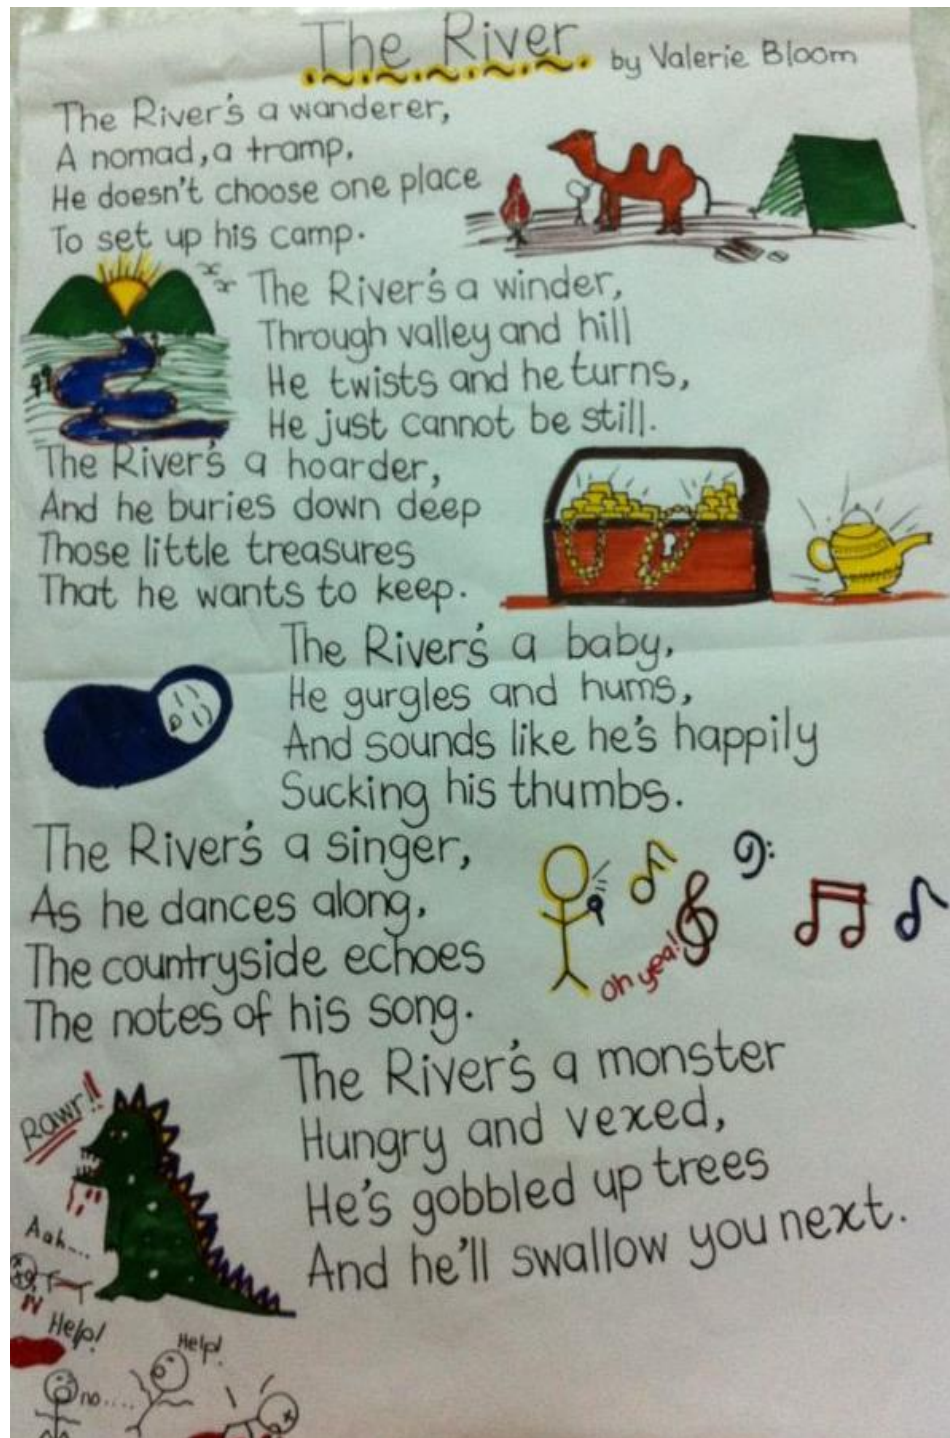 The River
by Valerie Bloom
The River's a wanderer,
A nomad, a tramp,
He doesn't choose one place
To set up his camp.
The River's a winder,
Through valley and hill
He twists and he turns,
He just cannot be still.
The River's a hoarder,
And he buries down deep
Those little treasures
That he wants to keep.
The River's a baby,
He gurgles and hums,
And sounds like he's happily
Sucking his thumbs.
The River's a singer,
As he dances along,
The countryside echoes
The notes of his song.
Oh yea!
The River's a monster
Hungry and vexed,
He's gobbled up trees
And he'll swallow you next.
Rawr!!
Aah....
Help!
Help!
no....